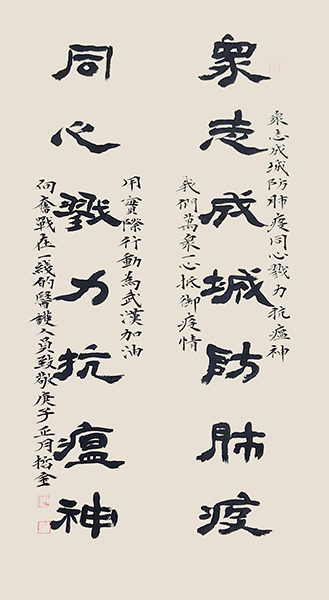 衆志成城防肺疫
同心戮力抗瘟神
衆志成城防肺疫同心戮力抗瘟神
我們萬衆一心抵御疫情
用實際行動為武漢加油
向奮戰在一綫的醫護人員致敬庚子正月